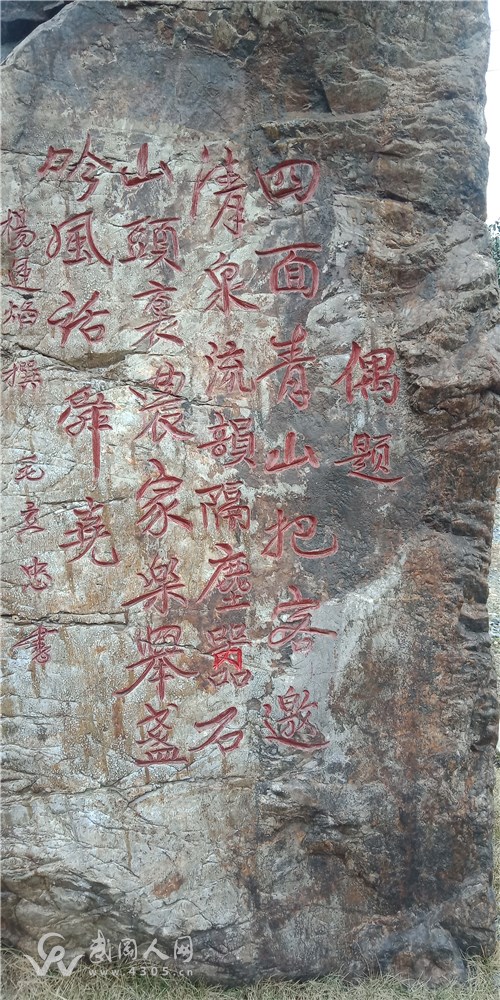 偶题
四面青山把客邀
清泉流韻隔塵囂石
山頭裏農家樂舉盞
吟風話舜堯
楊建焰撰 毛真忠書
武冈人网
www.4305.cn